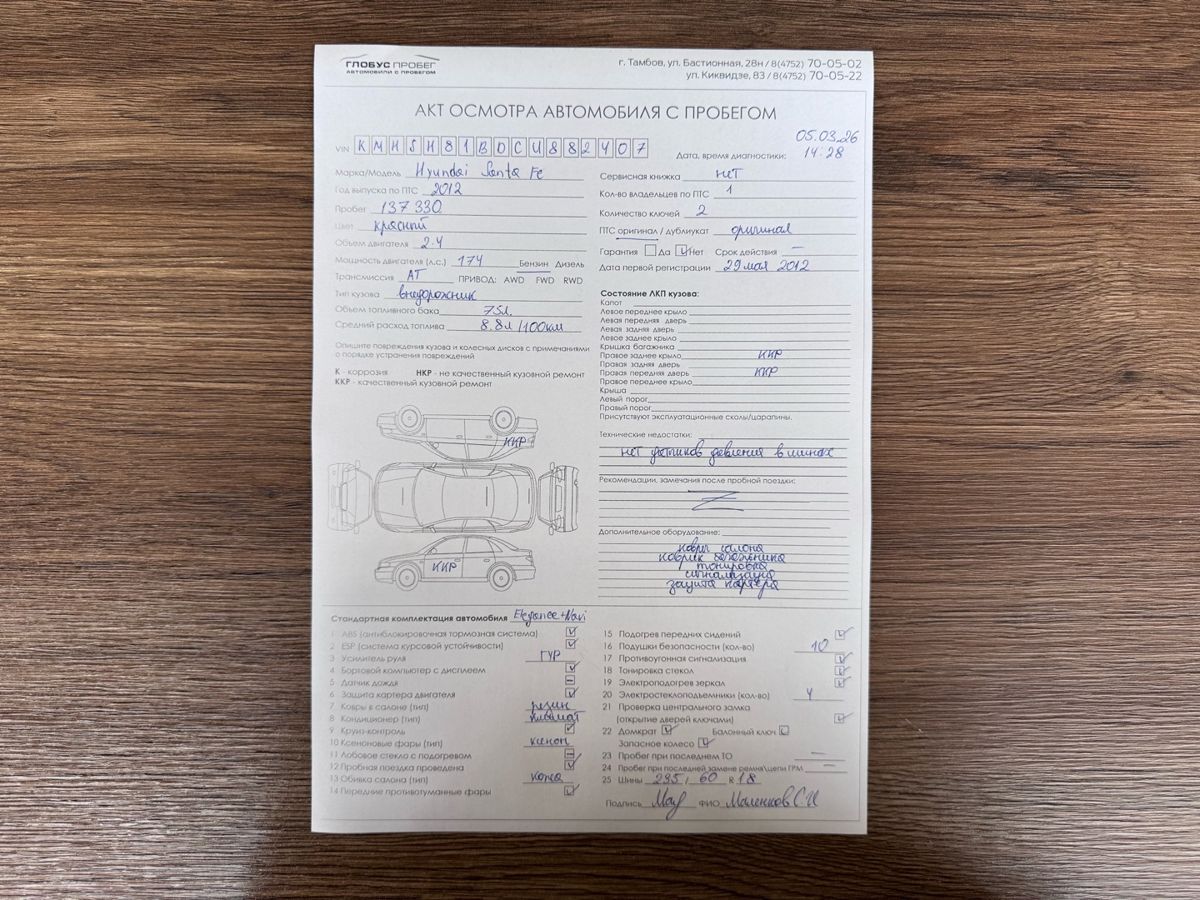 ГЛОБУС ПРОБЕГ
АВТОМОБИЛИ С ПРОБЕГОМ
г. Тамбов, ул. Бастионная, 28н / 8(4752) 70-05-02
ул. Киквидзе, 83 / 8(4752) 70-05-22
АКТ ОСМОТРА АВТОМОБИЛЯ С ПРОБЕГОМ
VIN KMHSH81BDCU882407
Дата, время диагностики: 05.03.26 14:28
Марка/Модель Hyundai Santa Fe
Год выпуска по ПТС 2012
Пробег 137 330
Цвет красный
Объем двигателя 2.4
Мощность двигателя (л.с.) 174 Бензин Дизель
Трансмиссия АТ ПРИВОД: AWD FWD RWD
Тип кузова внедорожник
Объем топливного бака 75л.
Средний расход топлива 8.8л/100км
Сервисная книжка нет
Кол-во владельцев по ПТС 1
Количество ключей 2
ПТС оригинал / дубликат оригинал
Гарантия Да Нет Срок действия –
Дата первой регистрации 29 мая 2012
Опишите повреждения кузова и колесных дисков с примечаниями
о порядке устранения повреждений
К - коррозия НКР - не качественный кузовной ремонт
ККР - качественный кузовной ремонт
ККР
ККР
Состояние ЛКП кузова:
Капот
Левое переднее крыло
Левая передняя дверь
Левая задняя дверь
Левое заднее крыло
Крышка багажника
Правое заднее крыло ККР
Правая задняя дверь
Правая передняя дверь ККР
Правое переднее крыло
Крыша
Левый порог
Правый порог
Присутствуют эксплуатационные сколы/царапины.
Технические недостатки:
нет датчиков давления в шинах
Рекомендации, замечания после пробной поездки:
Дополнительное оборудование:
ковры салона
коврик багажника
тонировка
сигнализация
защита картера
Стандартная комплектация автомобиля Elegance+Navi
1 ABS (антиблокировочная тормозная система)
2 ESP (система курсовой устойчивости)
3 Усилитель руля ГУР
4 Бортовой компьютер с дисплеем
5 Датчик дождя –
6 Защита картера двигателя
7 Ковры в салоне (тип) резин
8 Кондиционер (тип) климат
9 Круиз-контроль
10 Ксеноновые фары (тип) ксенон
11 Лобовое стекло с подогревом –
12 Пробная поездка проведена
13 Обивка салона (тип) кожа
14 Передние противотуманные фары
15 Подогрев передних сидений
16 Подушки безопасности (кол-во) 10
17 Противоугонная сигнализация
18 Тонировка стекол
19 Электроподогрев зеркал
20 Электростеклоподъемники (кол-во) 4
21 Проверка центрального замка
(открытие дверей ключами)
22 Домкрат Балонный ключ
Запасное колесо
23 Пробег при последнем ТО –
24 Пробег при последней замене ремня\цепи ГРМ –
25 Шины 235 / 60 R 18
Подпись ФИО Маленков С.И